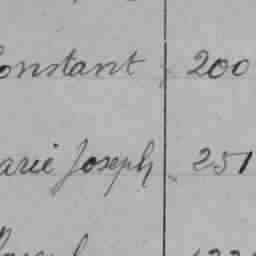 onstant 200
arie Joseph 251